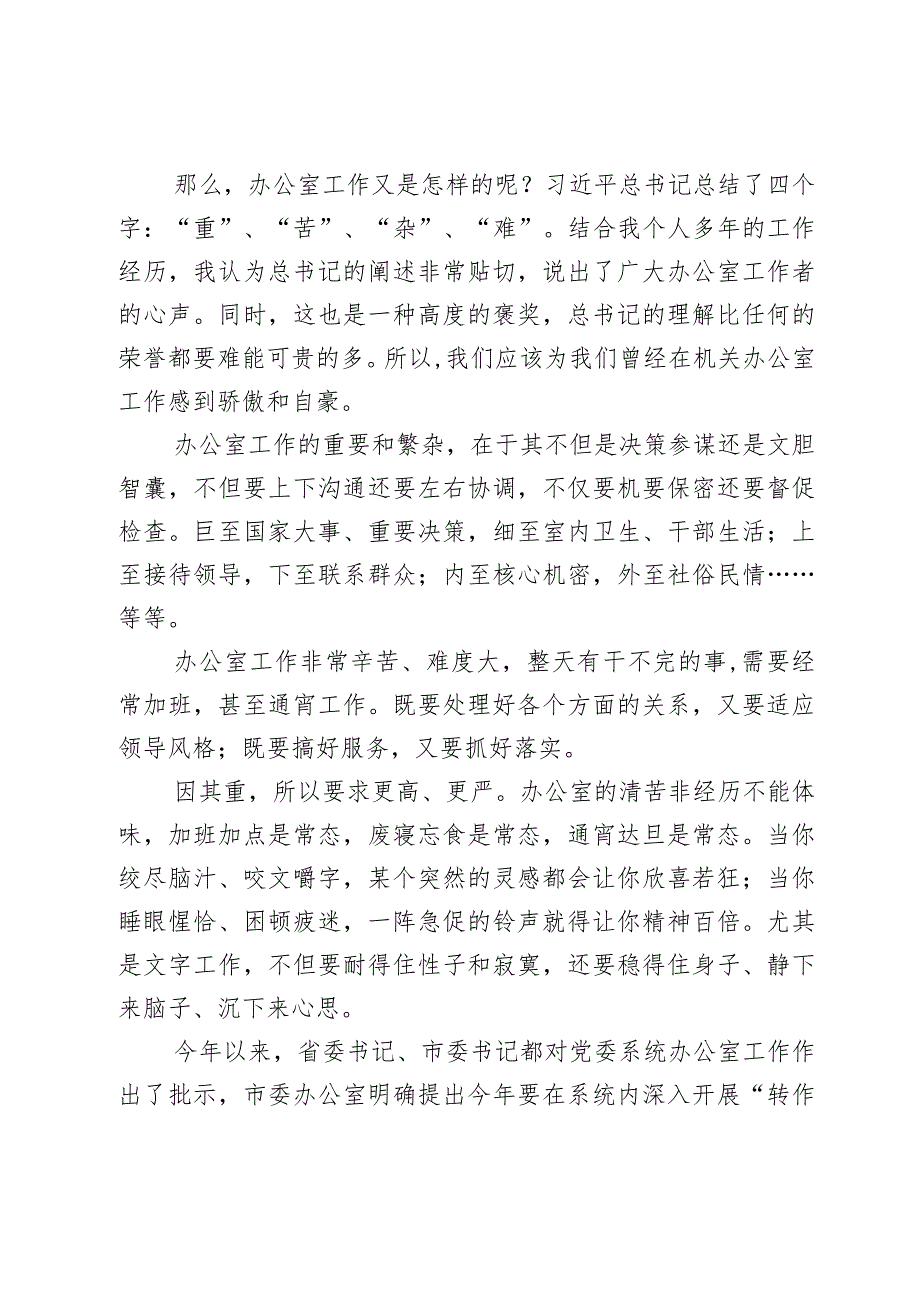 那么，办公室工作又是怎样的呢？习近平总书记总结了四个
字：“重”、“苦”、“杂”、“难”。结合我个人多年的工作
经历，我认为总书记的阐述非常贴切，说出了广大办公室工作者
的心声。同时，这也是一种高度的褒奖，总书记的理解比任何的
荣誉都要难能可贵的多。所以,我们应该为我们曾经在机关办公室
工作感到骄傲和自豪。
办公室工作的重要和繁杂，在于其不但是决策参谋还是文胆
智囊，不但要上下沟通还要左右协调，不仅要机要保密还要督促
检查。巨至国家大事、重要决策，细至室内卫生、干部生活；上
至接待领导，下至联系群众；内至核心机密，外至社俗民情……
等等。
办公室工作非常辛苦、难度大，整天有干不完的事,需要经
常加班，甚至通宵工作。既要处理好各个方面的关系，又要适应
领导风格；既要搞好服务，又要抓好落实。
因其重，所以要求更高、更严。办公室的清苦非经历不能体
味，加班加点是常态，废寝忘食是常态，通宵达旦是常态。当你
绞尽脑汁、咬文嚼字，某个突然的灵感都会让你欣喜若狂；当你
睡眼惺恰、困顿疲迷，一阵急促的铃声就得让你精神百倍。尤其
是文字工作，不但要耐得住性子和寂寞，还要稳得住身子、静下
来脑子、沉下来心思。
今年以来，省委书记、市委书记都对党委系统办公室工作作
出了批示，市委办公室明确提出今年要在系统内深入开展“转作